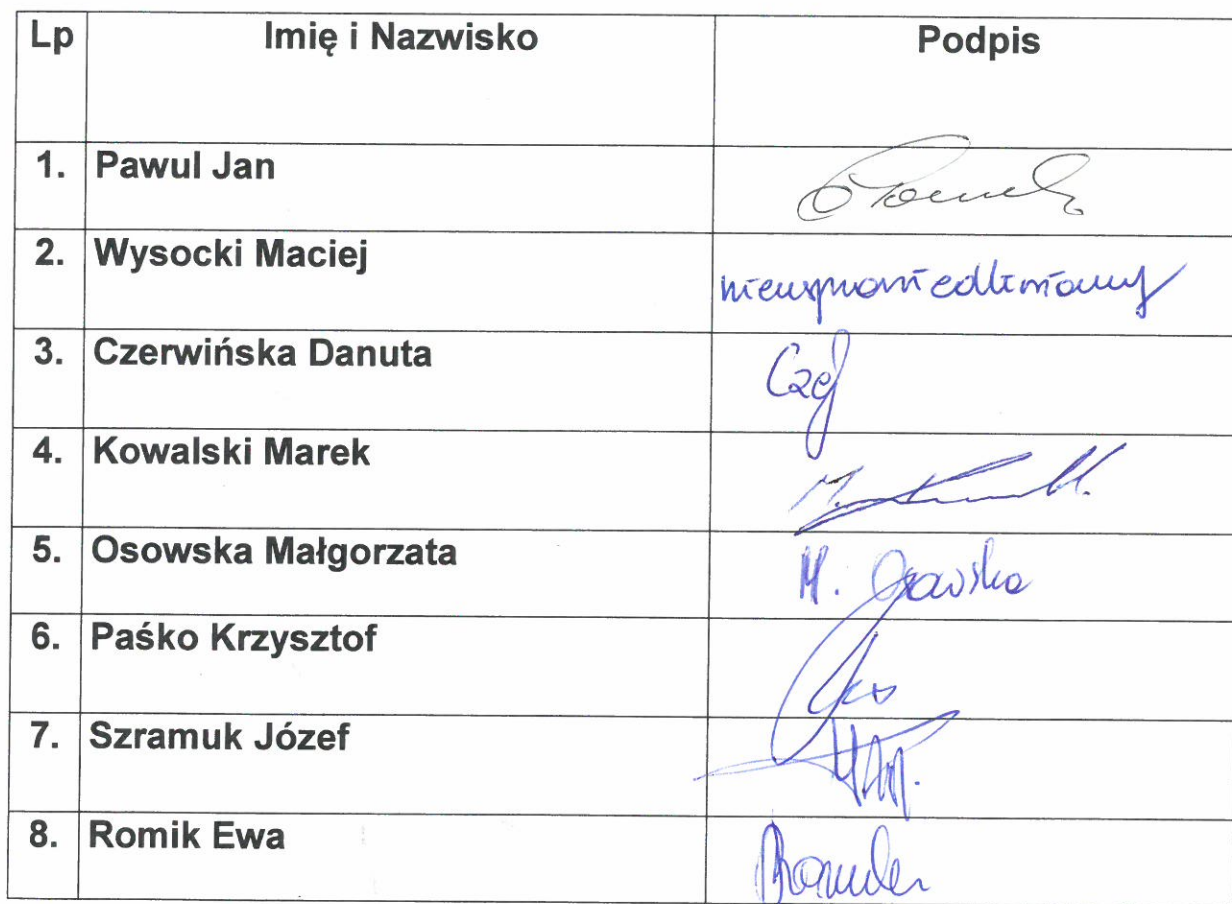 Lp Imię i Nazwisko Podpis
1. Pawul Jan
2. Wysocki Maciej nieusprawiedliwiony
3. Czerwińska Danuta
4. Kowalski Marek
5. Osowska Małgorzata M. Osowska
6. Paśko Krzysztof
7. Szramuk Józef
8. Romik Ewa